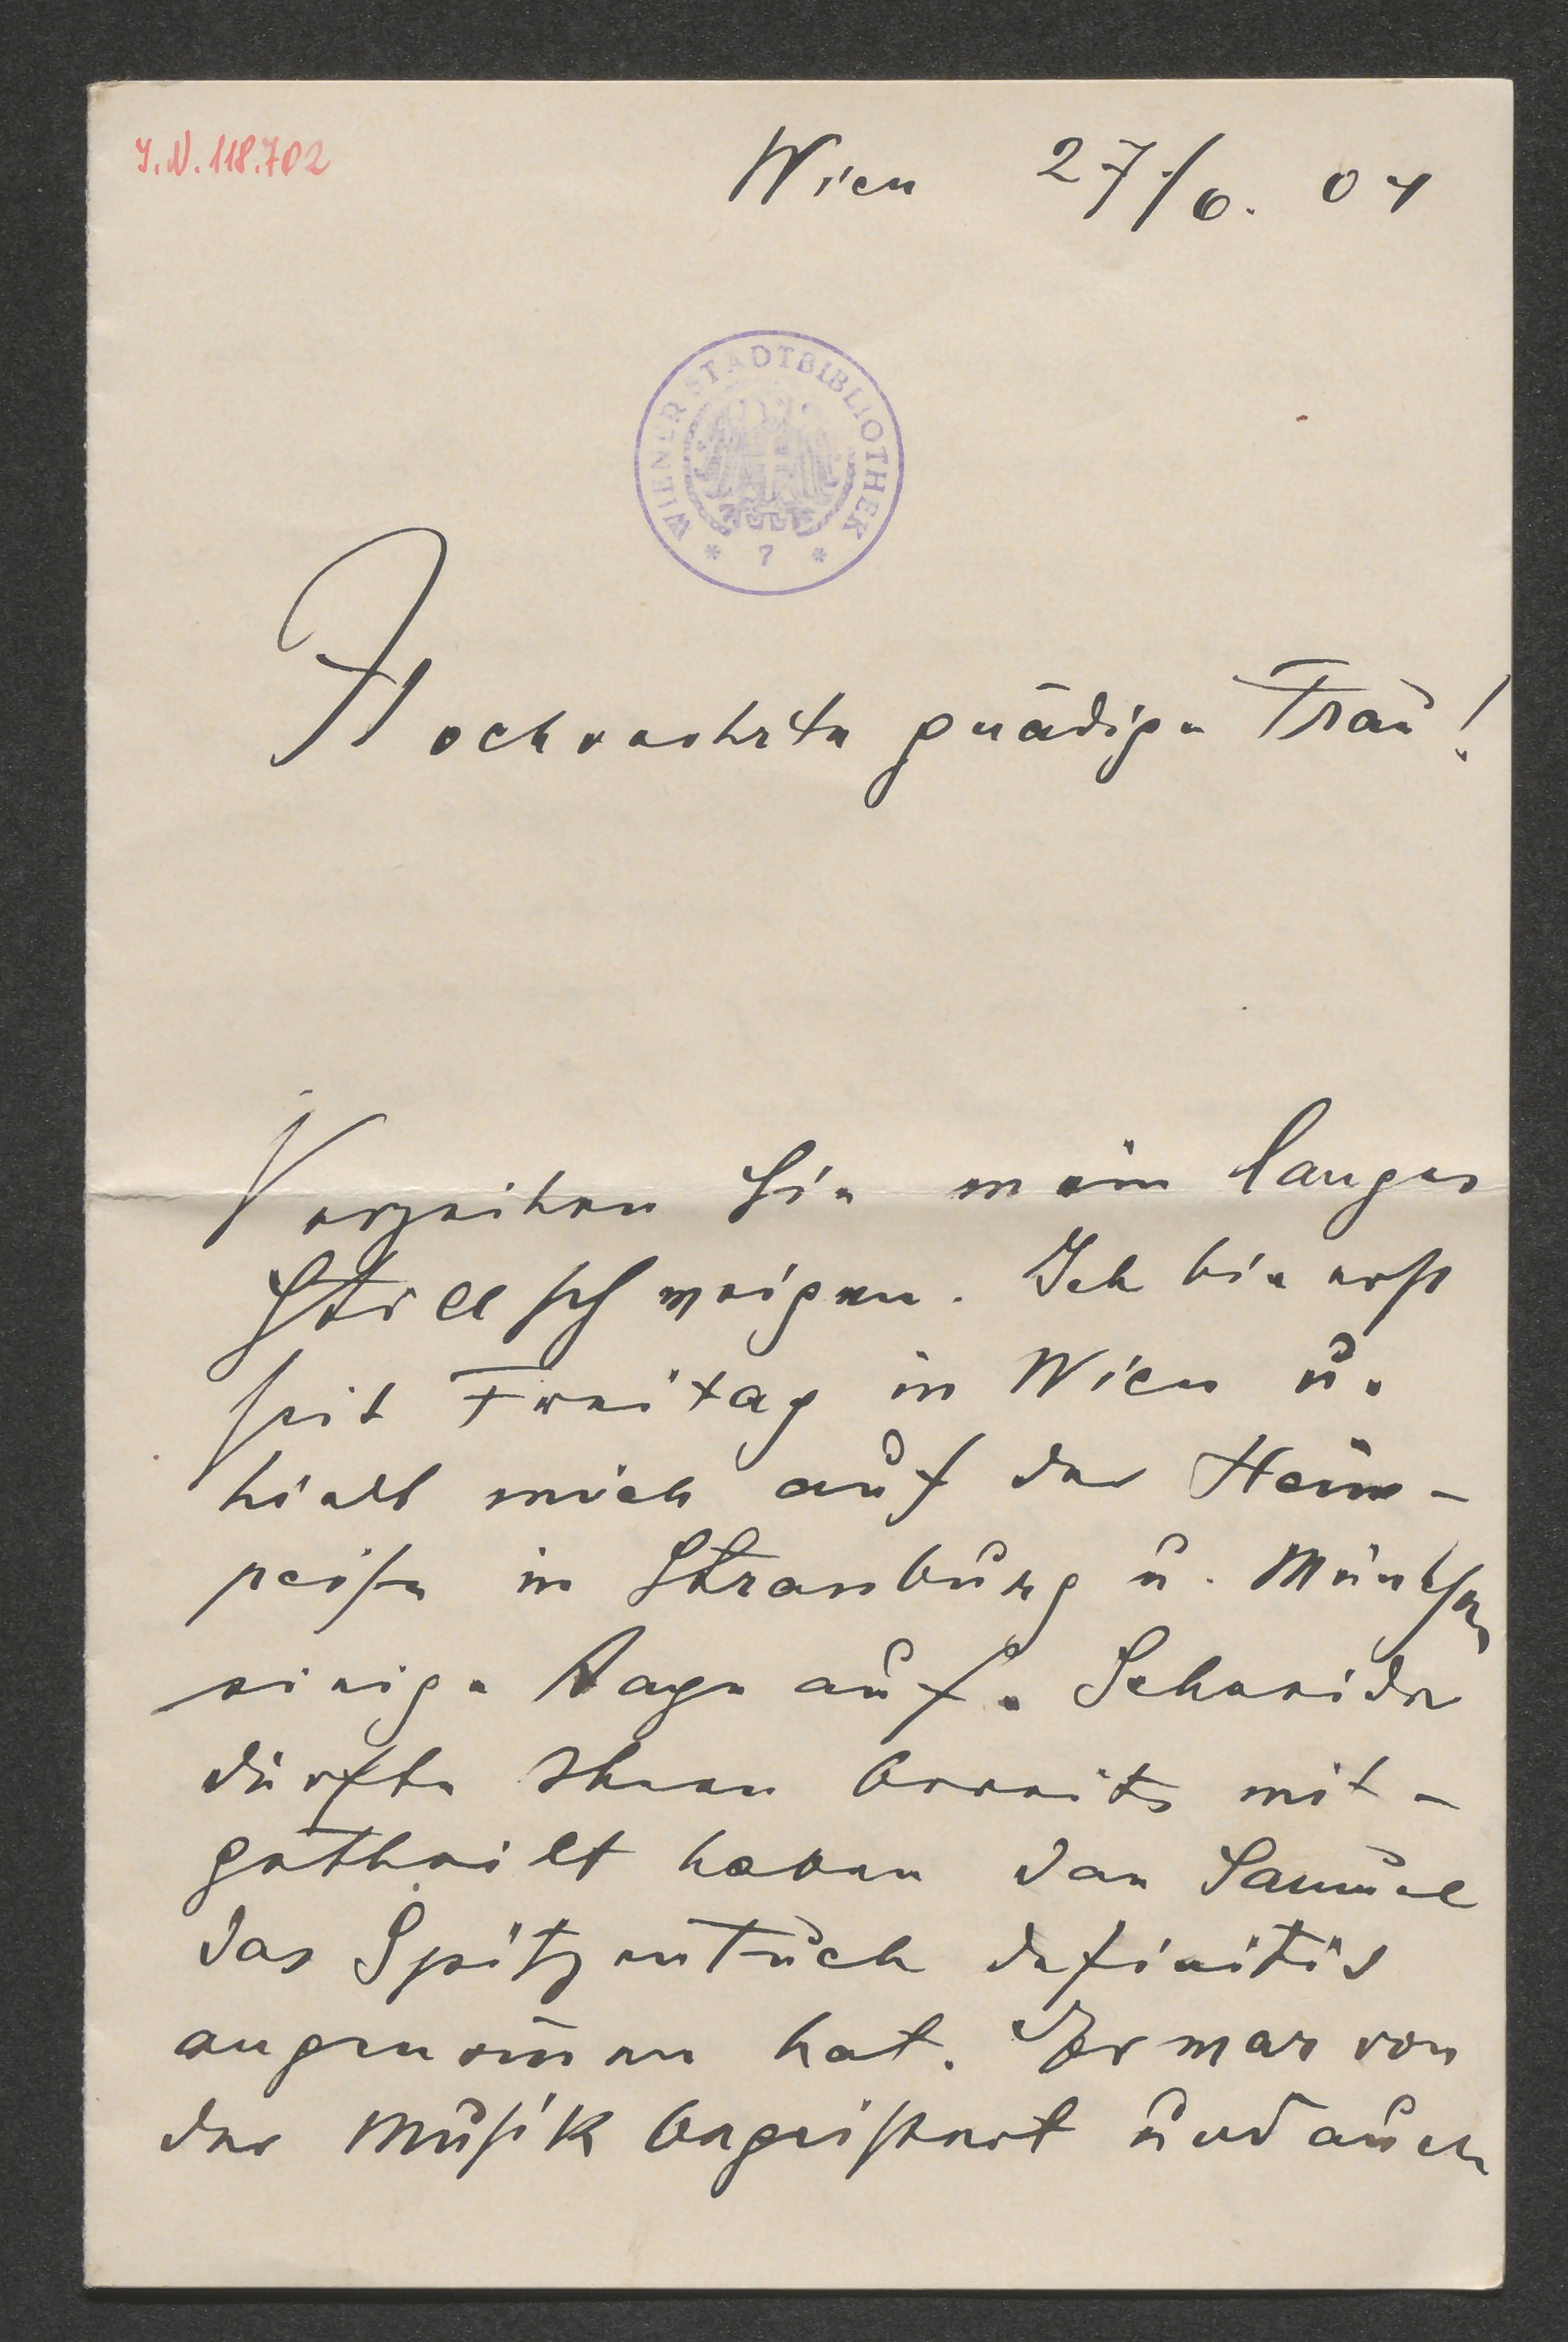 J.N. 118.702
Wien 27/6. 04
WIENER STADTBIBLIOTHEK
* 7 *
Hochverehrte gnädige Frau!
Verzeihen Sie mein langes
Stillschweigen. Ich bin erst
seit Freitag in Wien u.
hielt mich auf der Heim-
reise in Strassburg u. München
einige Tage auf. Schneider
dürfte Ihnen bereits mit-
getheilt haben dass Samuel
das Spitzentuch definitiv
angenom̅en hat. Er war von
der Musik begeistert und auch